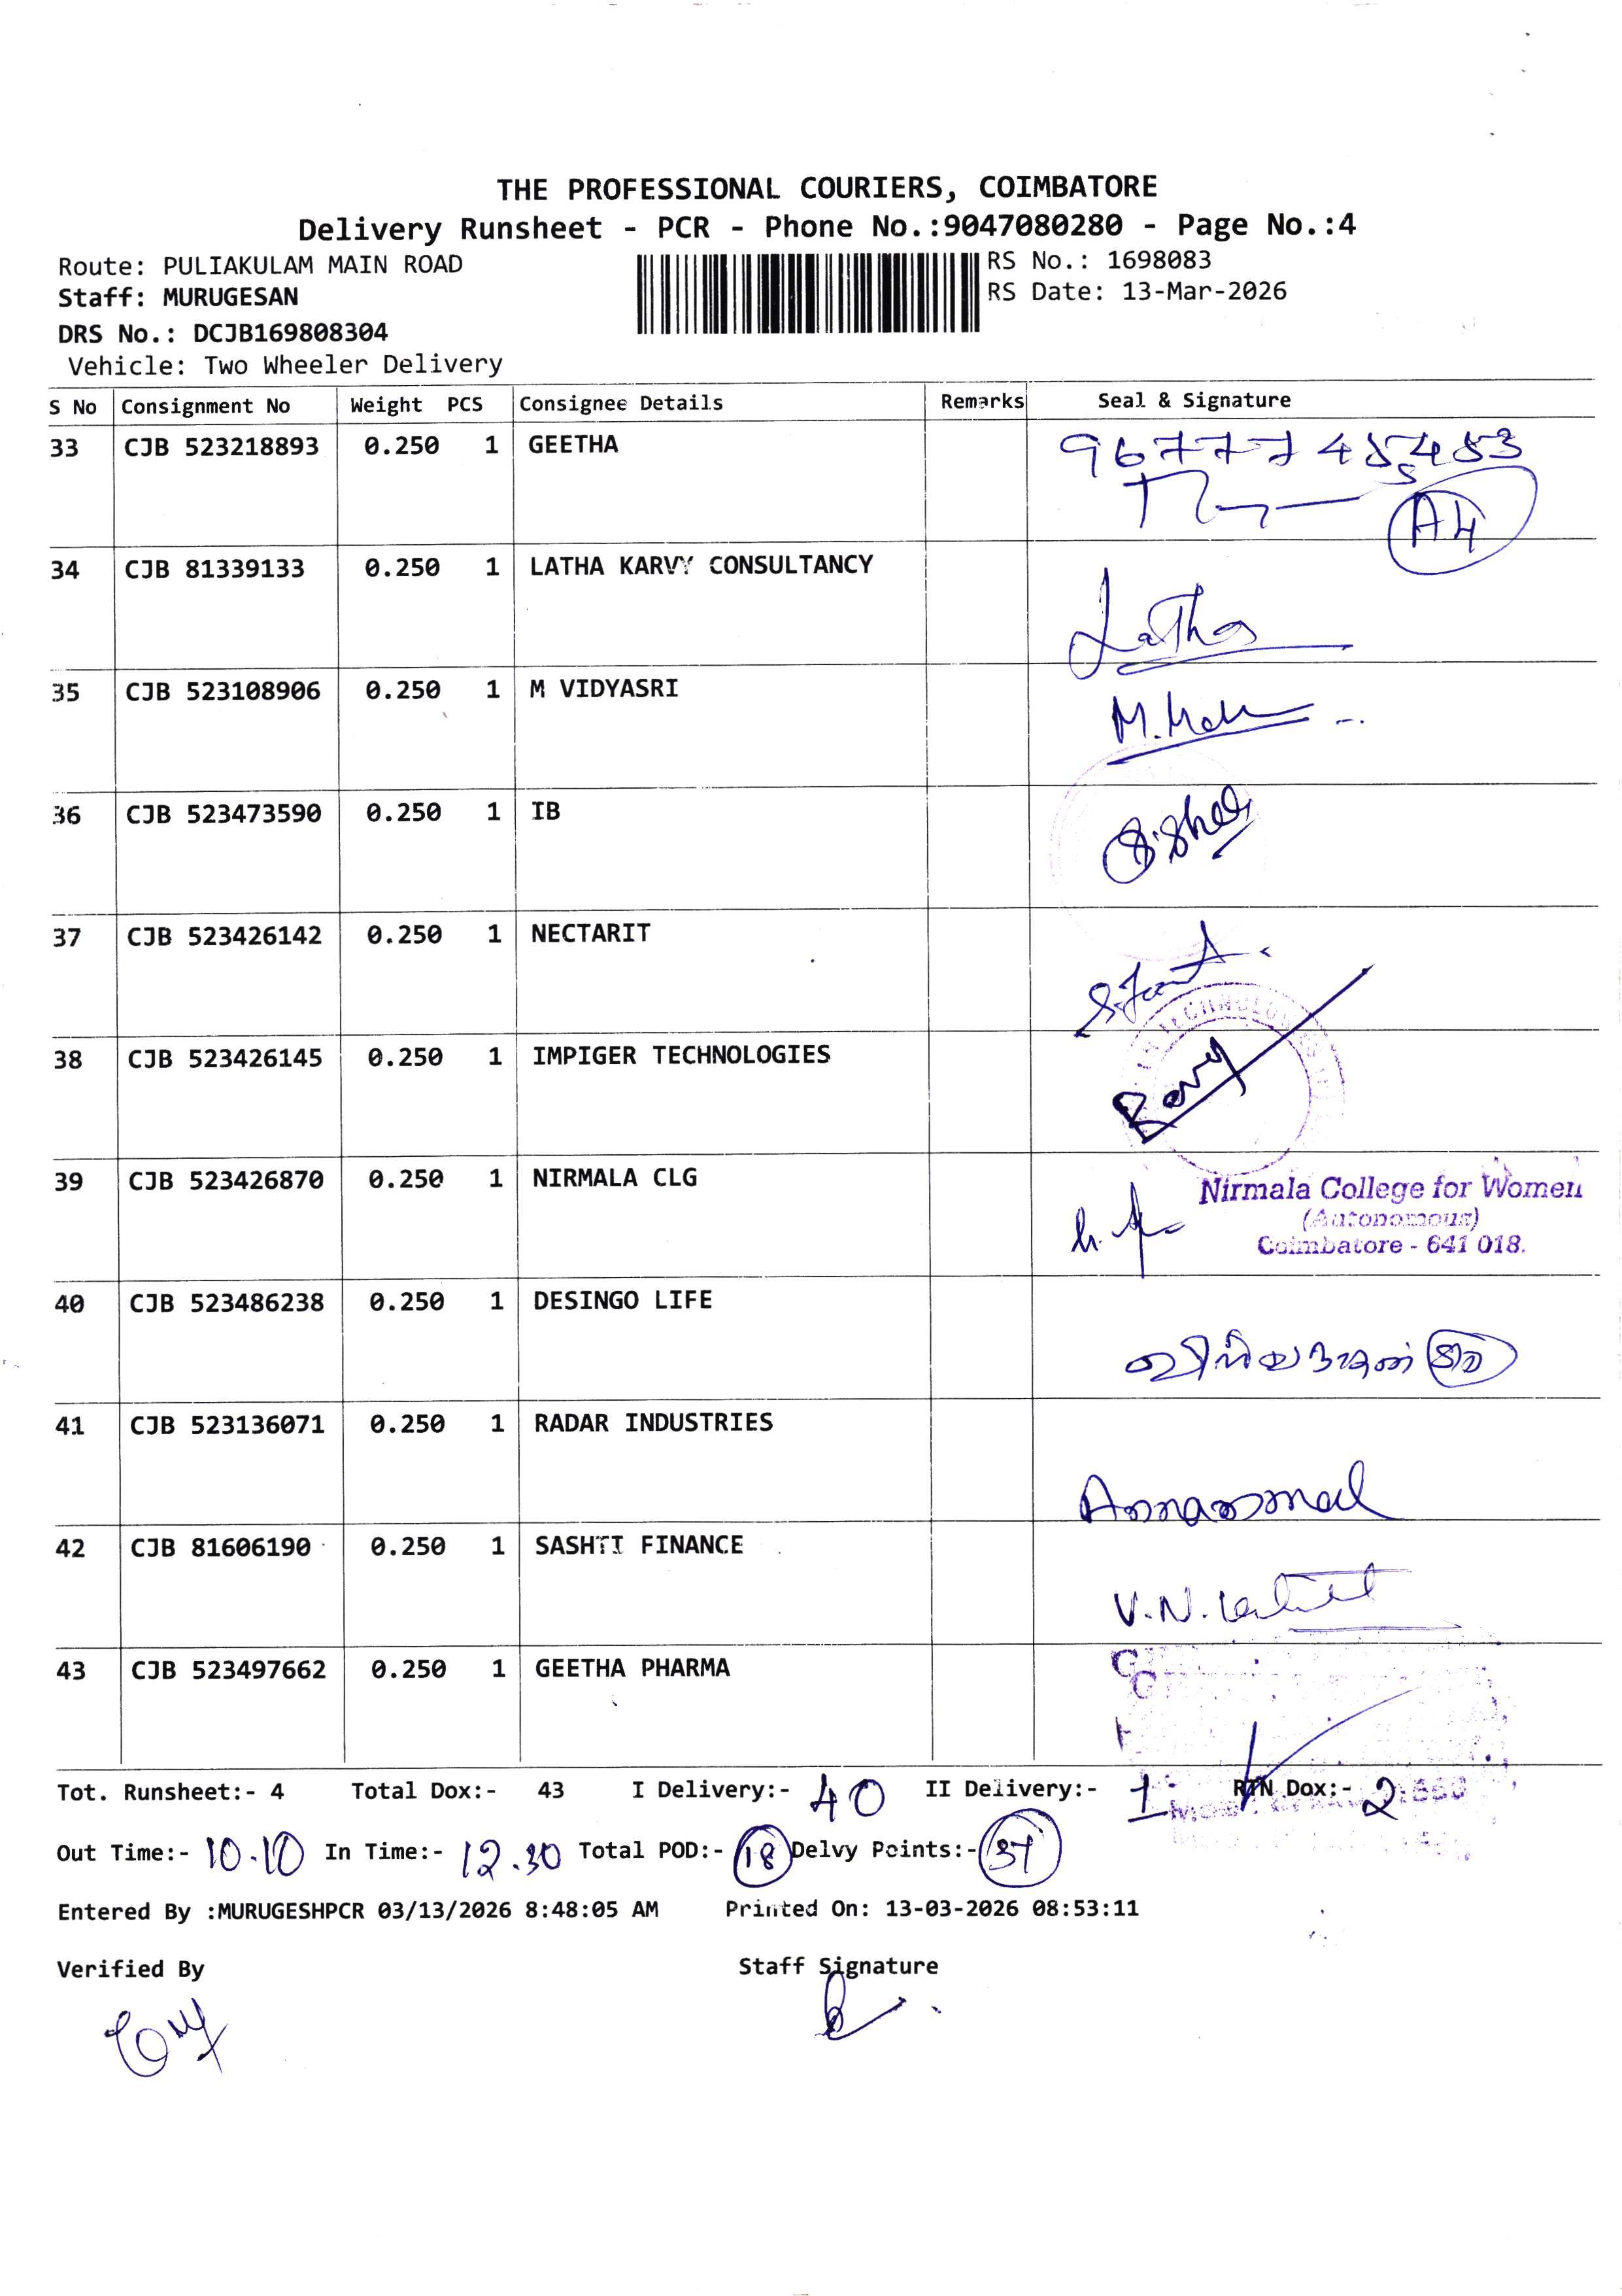 THE PROFESSIONAL COURIERS, COIMBATORE
Delivery Runsheet - PCR - Phone No.:9047080280 - Page No.:4
Route: PULIAKULAM MAIN ROAD
RS No.: 1698083
Staff: MURUGESAN
RS Date: 13-Mar-2026
DRS No.: DCJB169808304
Vehicle: Two Wheeler Delivery
S No Consignment No Weight PCS Consignee Details Remarks Seal & Signature
33 CJB 523218893 0.250 1 GEETHA
A4
34 CJB 81339133 0.250 1 LATHA KARVY CONSULTANCY
Latha
35 CJB 523108906 0.250 1 M VIDYASRI
36 CJB 523473590 0.250 1 IB
37 CJB 523426142 0.250 1 NECTARIT
38 CJB 523426145 0.250 1 IMPIGER TECHNOLOGIES
39 CJB 523426870 0.250 1 NIRMALA CLG Nirmala College for Women
(Autonomous)
Coimbatore - 641 018.
40 CJB 523486238 0.250 1 DESINGO LIFE
41 CJB 523136071 0.250 1 RADAR INDUSTRIES
42 CJB 81606190 0.250 1 SASHTI FINANCE
V.N.
43 CJB 523497662 0.250 1 GEETHA PHARMA
Tot. Runsheet:- 4 Total Dox:- 43 I Delivery:- 40 II Delivery:- 1 RTN Dox:- 2
Out Time:- 10.10 In Time:- 12.30 Total POD:- 18 Delvy Points:- 37
Entered By :MURUGESHPCR 03/13/2026 8:48:05 AM Printed On: 13-03-2026 08:53:11
Verified By Staff Signature